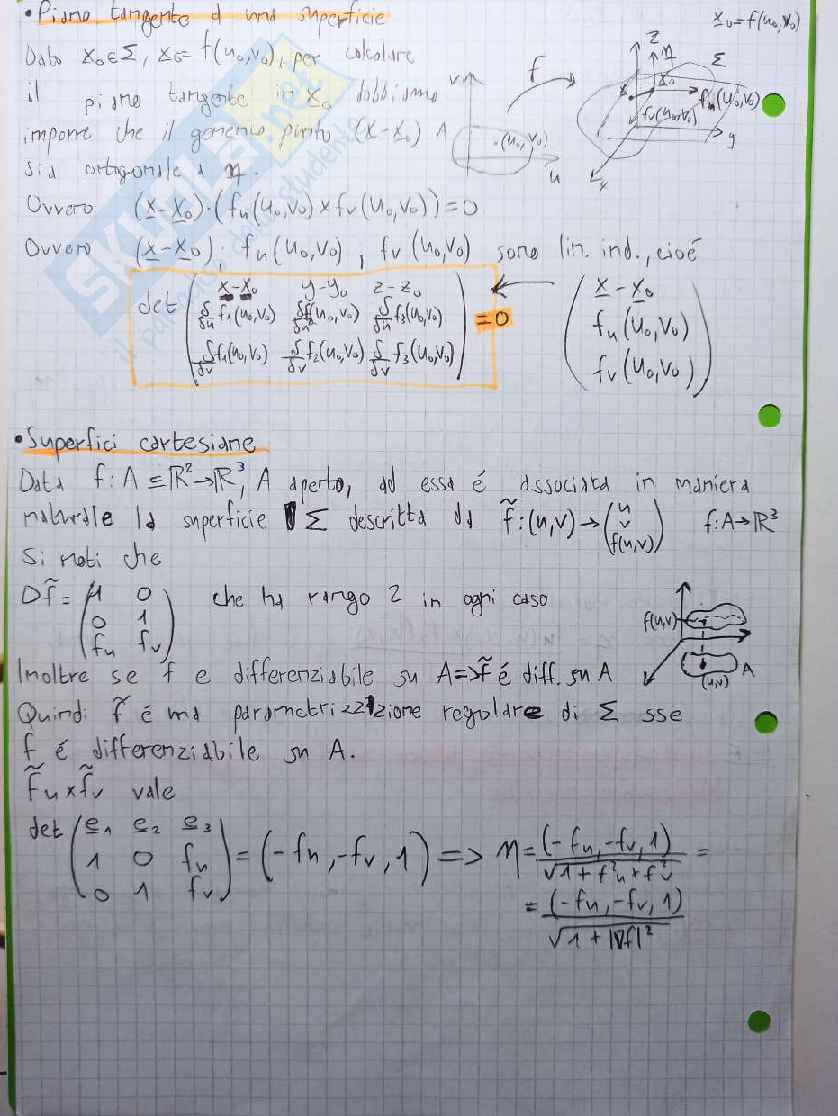 • Piano tangente a una superficie
x₀=f(u₀,v₀)
Dato x₀∈Σ, x₀=f(u₀,v₀), per calcolare
il piano tangente in x₀ dobbiamo
imporre che il generico punto (x-x₀)
sia ortogonale a η.
Ovvero (x-x₀)·(fu(u₀,v₀)×fv(u₀,v₀))=0
Ovvero (x-x₀), fu(u₀,v₀), fv(u₀,v₀) sono lin. ind., cioé
v
u
f
.(u₀,v₀)
z
η
Σ
x₀
x
fu(u₀,v₀)
fv(u₀,v₀)
y
x
det ( x-x₀ y-y₀ z-z₀
δ/δu f₁(u₀,v₀) δ/δu f₂(u₀,v₀) δ/δu f₃(u₀,v₀)
δ/δv f₁(u₀,v₀) δ/δv f₂(u₀,v₀) δ/δv f₃(u₀,v₀) ) =0
← ( x-x₀
fu(u₀,v₀)
fv(u₀,v₀) )
• Superfici cartesiane
Data f:A⊆ℝ²→ℝ³, A aperto, ad essa é associata in maniera
naturale la superficie Σ descritta da f̃:(u,v)→(u v f(u,v)) f:A→ℝ³
Si noti che
Df̃= ( 1 0
0 1
fu fv ) che ha rango 2 in ogni caso
f(u,v)
A
(u,v)
Inoltre se f e differenziabile su A=>f̃ é diff. su A
Quindi f̃ é una parametrizzazione regolare di Σ sse
f é differenziabile su A.
f̃u×f̃v vale
det ( e₁ e₂ e₃
1 0 fu
0 1 fv ) = (-fu,-fv,1) => η = (-fu,-fv,1) / √1+f²u+f²v =
= (-fu,-fv,1) / √1+|∇f|²
SKUOLA.net